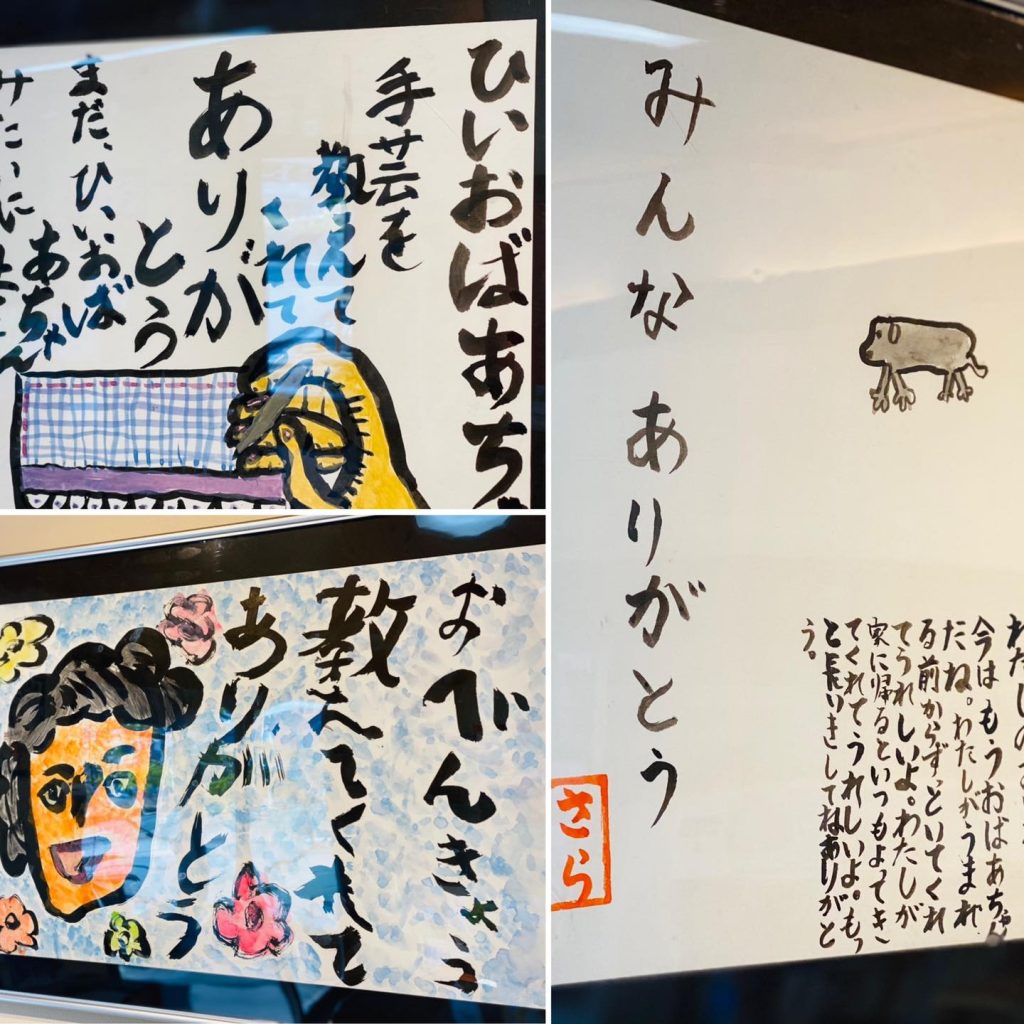 ひいおばあち
手芸を
教えて
くれて
ありが
とう
まだ、ひいおば
あちゃん
みたいに
おべんきょう
教えてくれて
ありがとう
みんなありがとう
わたしの
今はもうおばあちゃん
だね。わたしがうまれ
る前からずっといてくれ
てうれしいよ。わたしが
家に帰るといつもよってき
てくれてうれしいよ。もっ
と長いきしてねありがと
う。
さら